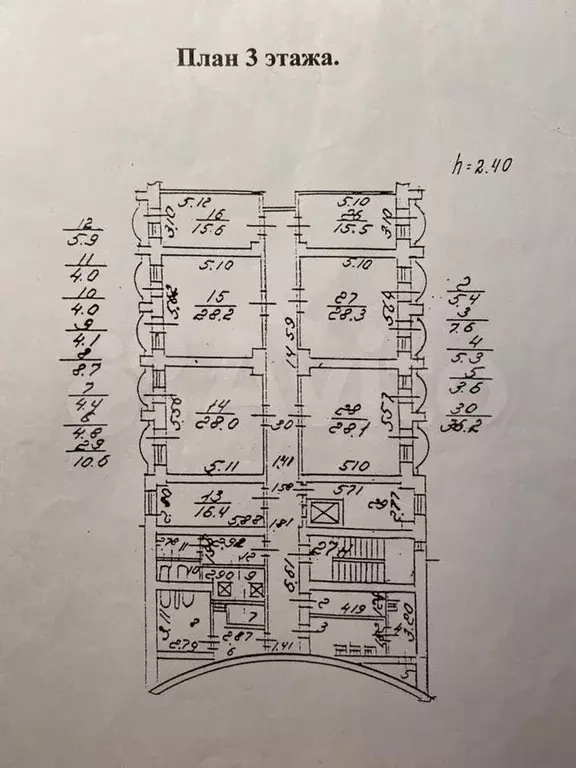 План 3 этажа.
h=2.40
12
5.9
11
4.0
10
4.0
9
4.1
8
8.7
7
4.4
6
4.8
29
10.6
2
5.4
3
7.6
4
5.3
5
3.6
30
36.2
5.12
16
15.6
3.10
5.10
26
15.5
3.10
5.10
15
28.2
5.10
27
28.3
5.64
14 59
14
28.0
5.56
5.11
30
28
28.1
5.57
510
1.41
13
16.4
5.88
1.58
1.81
571
2.77
2.92
11
12
10
2.90
9
2.78
5.61
3.11
8
2.79
7
2.87
6
1.41
2
419
3
4
3.20
5